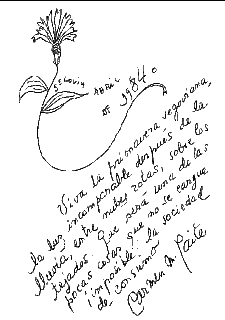 SEGOVIA ABRIL
DE 1984.
Viva la primavera segoviana,
la luz incomparable después de la
lluvia, entre nubes rotas, sobre los
tejados. Que será una de las
pocas cosas que no se cargue
¡imposible! la sociedad
de consumo
Carmen M. Gaite